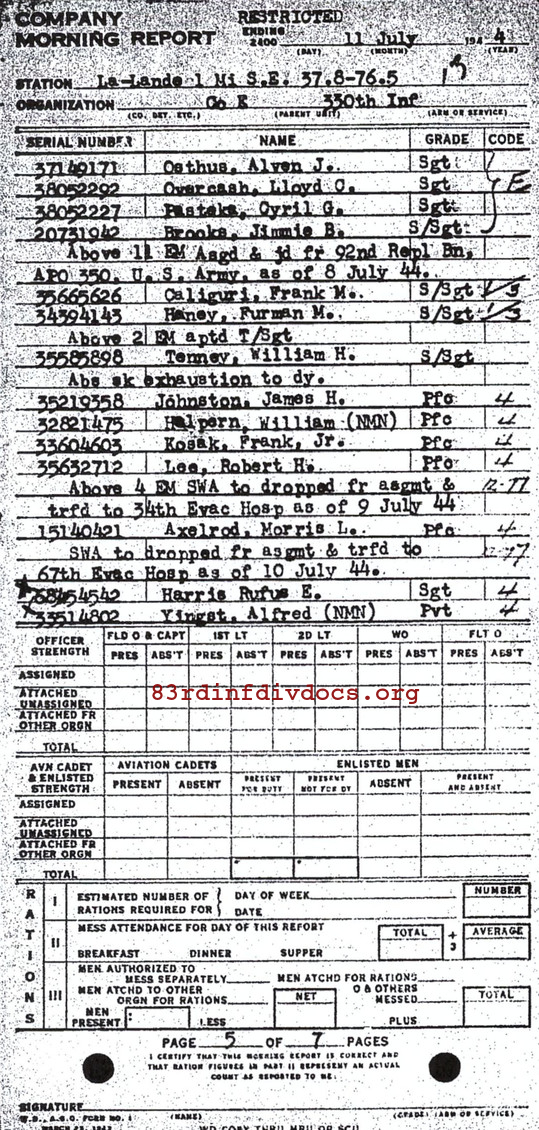 COMPANY
MORNING REPORT
RESTRICTED
ENDING
2400
11 July 194 4
(DAY) (MONTH) (YEAR)
STATION La-Lande 1 Mi S.E. 37.8-76.5
ORGANIZATION Co K 330th Inf
(CO. DET. ETC.) (PARENT UNIT) (ARM OR SERVICE)
SERIAL NUMBER NAME GRADE CODE
37149171 Osthus, Alven J. Sgt
38052292 Overcash, Lloyd C. Sgt E
38052227 Pasteka, Cyril G. Sgt
20731942 Brooks, Jimmie B. S/Sgt
Above 11 EM Asgd & jd fr 92nd Repl Bn,
APO 350, U.S. Army, as of 8 July 44.
35665626 Caliguri, Frank M. S/Sgt
34394143 Haney, Furman M. S/Sgt
Above 2 EM aptd T/Sgt
35585898 Tenney, William H. S/Sgt
Abs sk exhaustion to dy.
35219358 Johnston, James H. Pfc 4
32821475 Halpern, William (NMN) Pfc 4
33604603 Kosak, Frank, Jr. Pfc 4
35632712 Lee, Robert H. Pfc 4
Above 4 EM SWA to dropped fr asgmt & 12-77
trfd to 34th Evac Hosp as of 9 July 44
15140421 Axelrod, Morris L. Pfc 4
SWA to dropped fr asgmt & trfd to 12-77
67th Evac Hosp as of 10 July 44.
Harris Rufus E. Sgt 4
33514802 Yingst, Alfred (NMN) Pvt 4
OFFICER STRENGTH FLD O & CAPT 1ST LT 2D LT WO FLT O
PRES ABS'T PRES ABS'T PRES ABS'T PRES ABS'T PRES ABS'T
ASSIGNED
ATTACHED UNASSIGNED
83rdinfdivdocs.org
ATTACHED FR OTHER ORGN
TOTAL
AVN CADET & ENLISTED STRENGTH AVIATION CADETS ENLISTED MEN
PRESENT ABSENT PRESENT FOR DUTY PRESENT NOT FOR DY ABSENT PRESENT AND ABSENT
ASSIGNED
ATTACHED UNASSIGNED
ATTACHED FR OTHER ORGN
TOTAL
RATIONS
I ESTIMATED NUMBER OF RATIONS REQUIRED FOR DAY OF WEEK DATE NUMBER
II MESS ATTENDANCE FOR DAY OF THIS REPORT TOTAL ÷ 3 AVERAGE
BREAKFAST DINNER SUPPER
III MEN AUTHORIZED TO MESS SEPARATELY MEN ATCHD FOR RATIONS
MEN ATCHD TO OTHER ORGN FOR RATIONS NET O & OTHERS MESSED TOTAL
MEN PRESENT LESS PLUS
PAGE 5 OF 7 PAGES
I CERTIFY THAT THIS MORNING REPORT IS CORRECT AND
THAT RATION FIGURES IN PART II REPRESENT AN ACTUAL
COUNT AS REPORTED TO ME.
SIGNATURE
W.D., A.G.O. FORM NO. 1 (NAME) (GRADE) (ARM OR SERVICE)